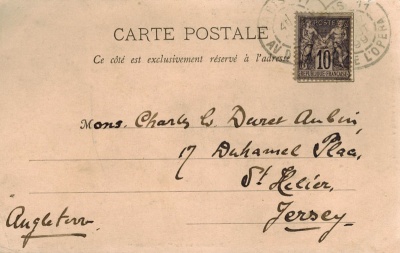 CARTE POSTALE
Ce côté est exclusivement réservé à l'adresse
POSTE
10
REPUBLIQUE FRANCAISE
AV DE L'OPERA
Mons. Charles Le Duret Aubin
17 Duhamel Place,
St Helier,
Jersey
Angleterre